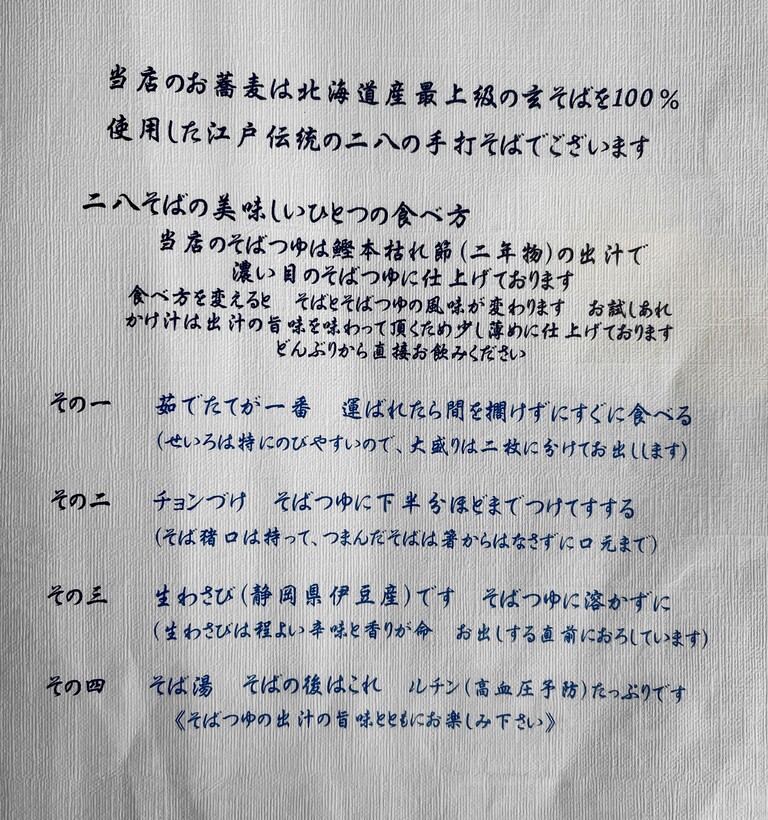 当店のお蕎麦は北海道産最上級の玄そばを100%
使用した江戸伝統の二八の手打そばでございます
二八そばの美味しいひとつの食べ方
当店のそばつゆは鰹本枯れ節(二年物)の出汁で
濃い目のそばつゆに仕上げております
食べ方を変えると　そばとそばつゆの風味が変わります　お試しあれ
かけ汁は出汁の旨味を味わって頂くため少し薄めに仕上げております
どんぶりから直接お飲みください
その一　茹でたてが一番　運ばれたら間を擱けずにすぐに食べる
(せいろは特にのびやすいので、大盛りは二枚に分けてお出しします)
その二　チョンづけ　そばつゆに下半分ほどまでつけてすする
(そば猪口は持って、つまんだそばは箸からはなさずに口元まで)
その三　生わさび(静岡県伊豆産)です　そばつゆに溶かずに
(生わさびは程よい辛味と香りが命　お出しする直前におろしています)
その四　そば湯　そばの後はこれ　ルチン(高血圧予防)たっぷりです
《そばつゆの出汁の旨味とともにお楽しみ下さい》